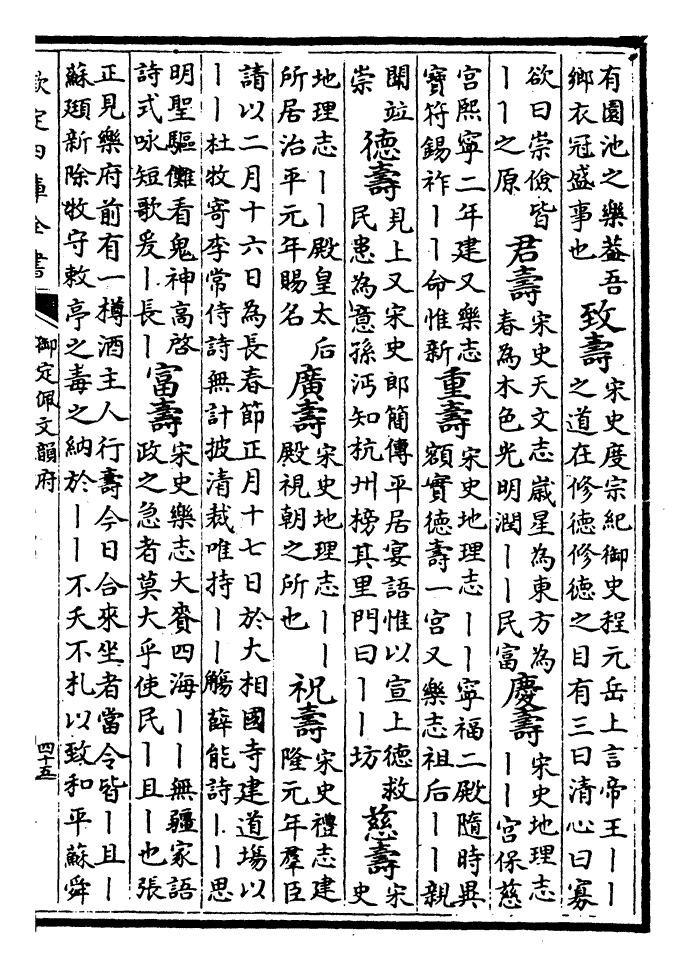 有園池之樂葢吾鄉衣冠盛事也 致壽 宋史度宗紀御史程元岳上言帝王丨丨之道在修德修德之目有三曰清心曰寡
欲曰崇儉皆丨丨之原 君壽 宋史天文志嵗星為東方為春為木色光明潤丨丨民富 慶壽 宋史地理志丨丨宮保慈
宮熙寧二年建又樂志寶符錫祚丨丨命惟新 重壽 宋史地理志丨丨寧福二殿隨時異額實德壽一宮又樂志祖后丨丨親
闈竝崇 德壽 見上又宋史郎簡傳平居宴語惟以宣上德救民患為意孫沔知杭州榜其里門曰丨丨坊 慈壽 宋史
地理志丨丨殿皇太后所居治平元年賜名 廣壽 宋史地理志丨丨殿視朝之所也 祝壽 宋史禮志建隆元年羣臣
請以二月十六日為長春節正月十七日於大相國寺建道場以丨丨杜牧寄李常侍詩無計披清裁唯持丨丨觴薛能詩丨丨思
明聖驅儺看鬼神高啓詩式咏短歌爰丨長丨 富壽 宋史樂志大賚四海丨丨無疆家語政之急者莫大乎使民丨且丨也張
正見樂府前有一樽酒主人行壽今日合來坐者當令皆丨且丨蘇頲新除牧守敕亭之毒之納於丨丨不夭不札以致和平蘇舜
欽定四庫全書
御定佩文韻府
四十五